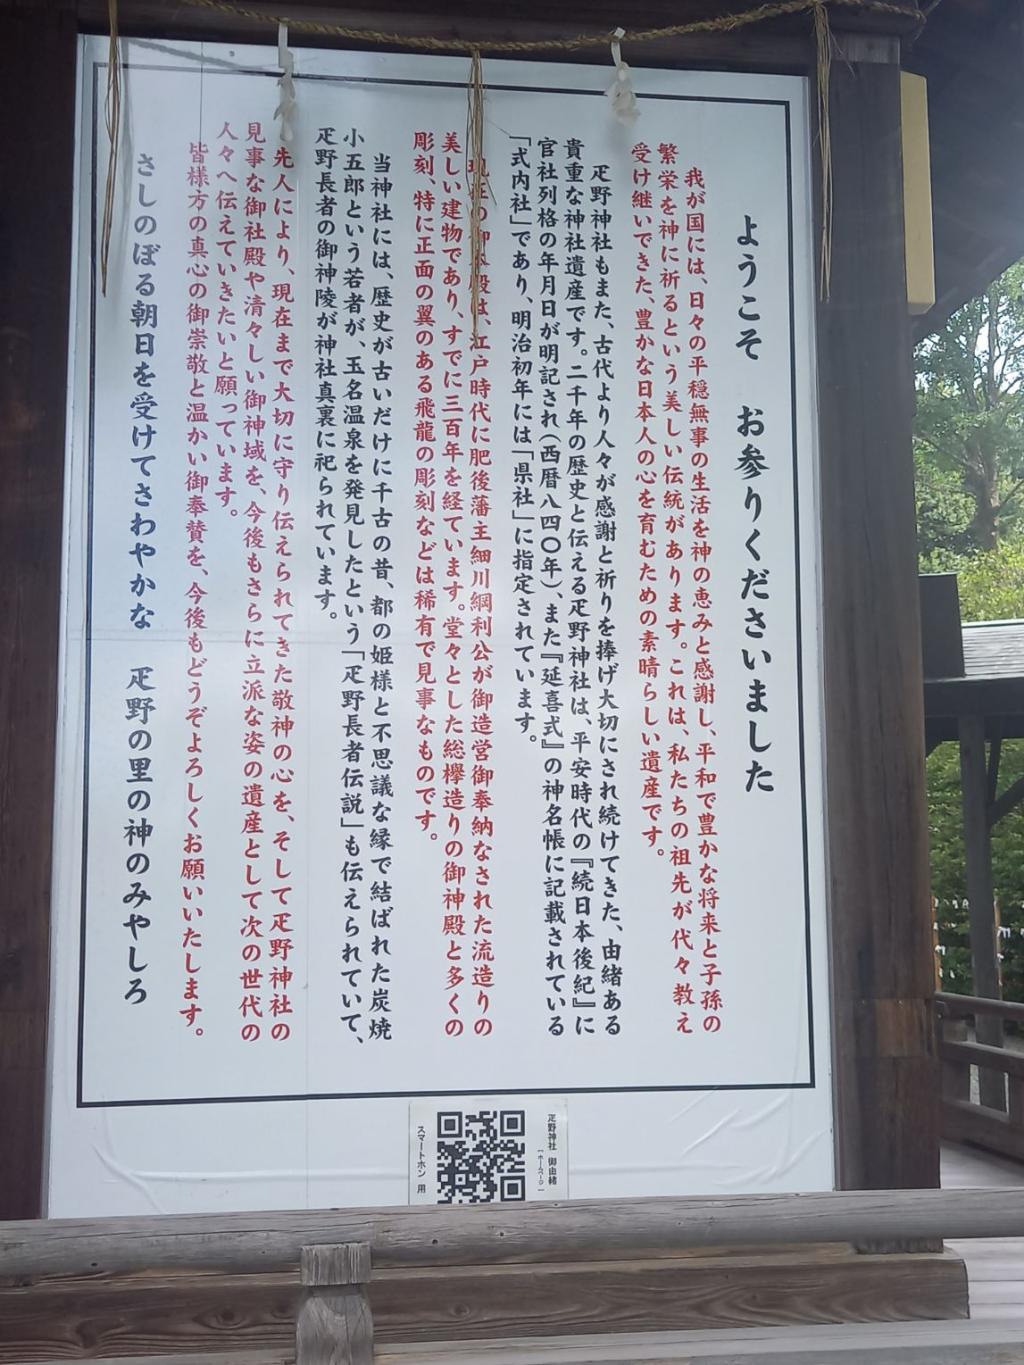 ようこそ　お参りくださいました
我が国には、日々の平穏無事の生活を神の恵みと感謝し、平和で豊かな将来と子孫の
繁栄を神に祈るという美しい伝統があります。これは、私たちの祖先が代々教え
受け継いできた、豊かな日本人の心を育むための素晴らしい遺産です。
疋野神社もまた、古代より人々が感謝と祈りを捧げ大切にされ続けてきた、由緒ある
貴重な神社遺産です。二千年の歴史と伝える疋野神社は、平安時代の『続日本後紀』に
官社列格の年月日が明記され(西暦八四〇年)、また『延喜式』の神名帳に記載されている
「式内社」であり、明治初年には「県社」に指定されています。
現在の御本殿は、江戸時代に肥後藩主細川綱利公が御造営御奉納なされた流造りの
美しい建物であり、すでに三百年を経ています。堂々とした総欅造りの御神殿と多くの
彫刻、特に正面の翼のある飛龍の彫刻などは稀有で見事なものです。
当神社には、歴史が古いだけに千古の昔、都の姫様と不思議な縁で結ばれた炭焼
小五郎という若者が、玉名温泉を発見したという「疋野長者伝説」も伝えられていて、
疋野長者の御神陵が神社真裏に祀られています。
先人により、現在まで大切に守り伝えられてきた敬神の心を、そして疋野神社の
見事な御社殿や清々しい御神域を、今後もさらに立派な姿の遺産として次の世代の
人々へ伝えていきたいと願っています。
皆様方の真心の御崇敬と温かい御奉賛を、今後もどうぞよろしくお願いいたします。
さしのぼる朝日を受けてさわやかな　疋野の里の神のみやしろ
疋野神社　御由緒
[ホームページ]
スマートホン　用